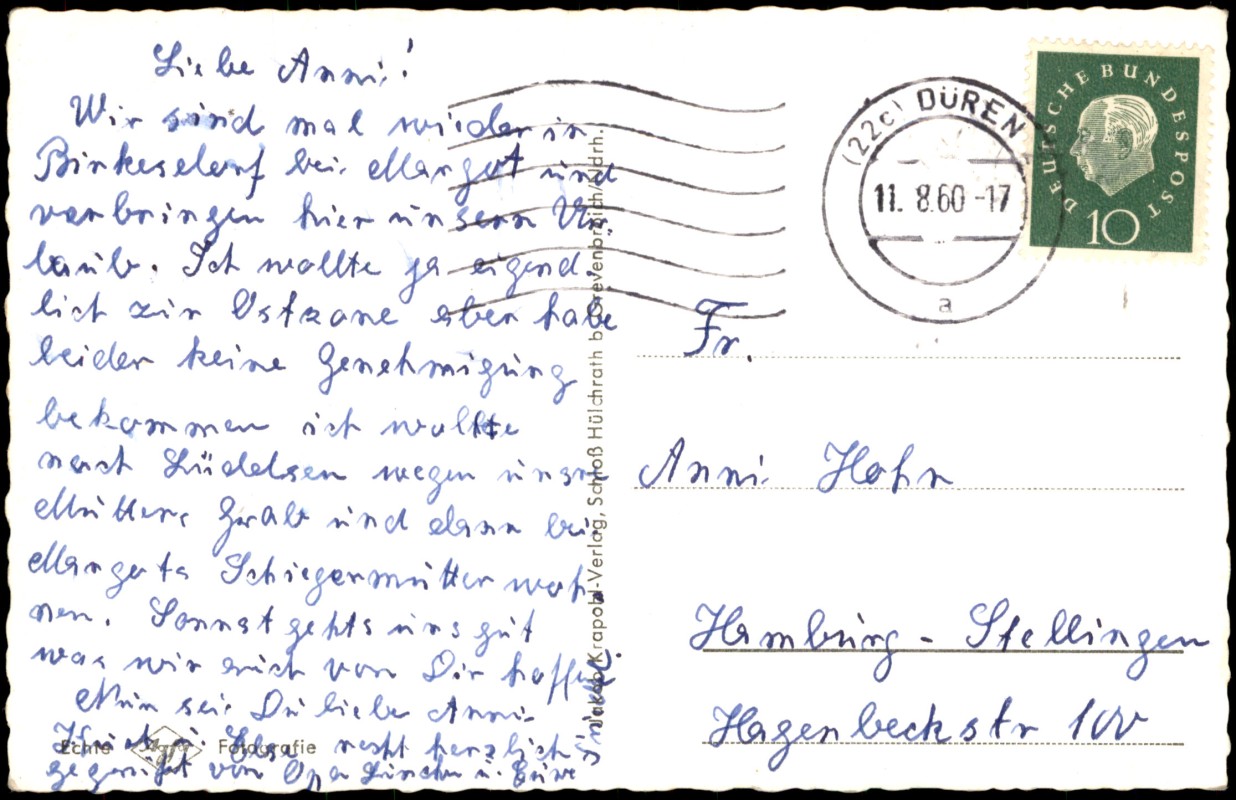 Liebe Anni!
Wir sind mal wieder in
Birkesdorf bei Margot und
verbringen hier unsern Ur-
laub. Ich wollte ja eigend-
lich zur Ostzone aber habe
leider keine Genehmigung
bekommen ich wollte
nach Lüdelsen wegen unsre
Mutters Grab und dann bei
Margots Schiegermutter woh-
nen. Sonnst gehts uns gut
was wir auch von Dir hoffen.
Nun sei Du liebe Anni
recht herzlich
gegrüßt von Opa u.
Echte Agfa Fotografie
Jakob Krapohl-Verlag, Schloß Hülchrath b. Grevenbroich/Ndrh.
(22c) DÜREN
11. 8.60 -17
a
DEUTSCHE BUNDESPOST
10
Fr.
Anni Hahn
Hamburg - Stellingen
Hagenbeckstr 100